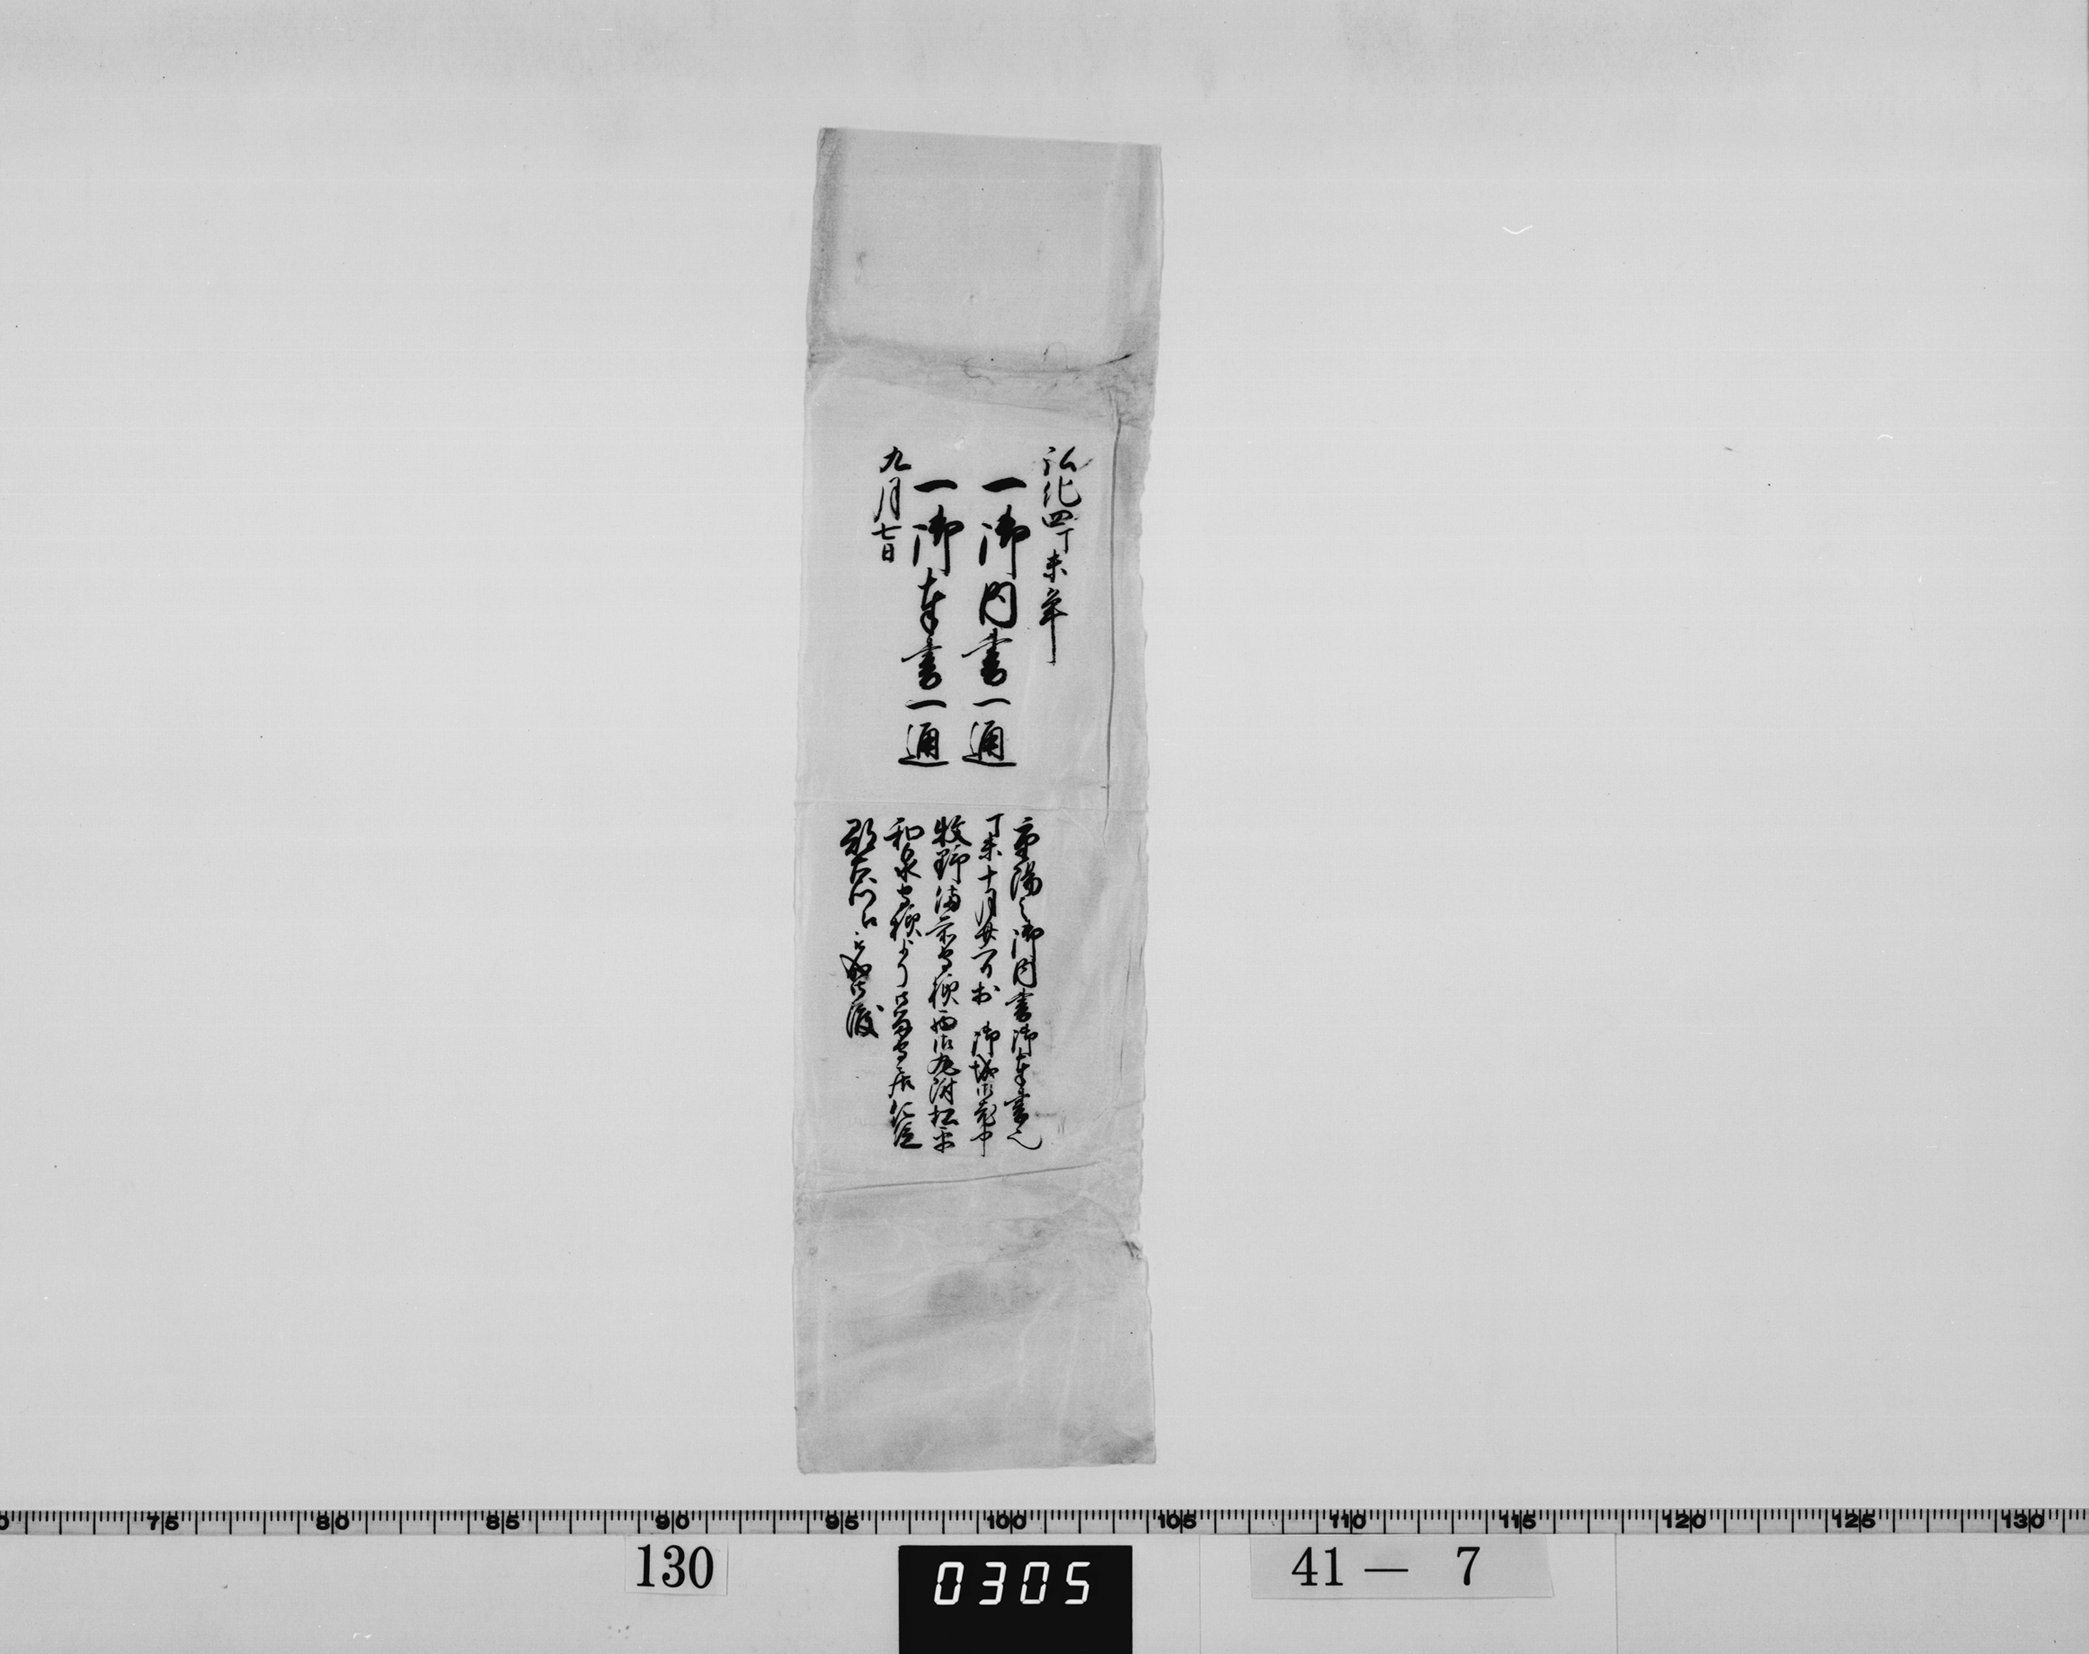 弘化四丁未年
一御内書一通
一御奉書一通
九月七日
重陽之御内書御奉書也
丁未十月廿六日於 御城御老中
牧野備前守様西御丸附松平
和泉守様ゟ御留守居
被成御渡
75 80 85 90 95 100 105 110 115 120 125 130
130
0305
41 — 7